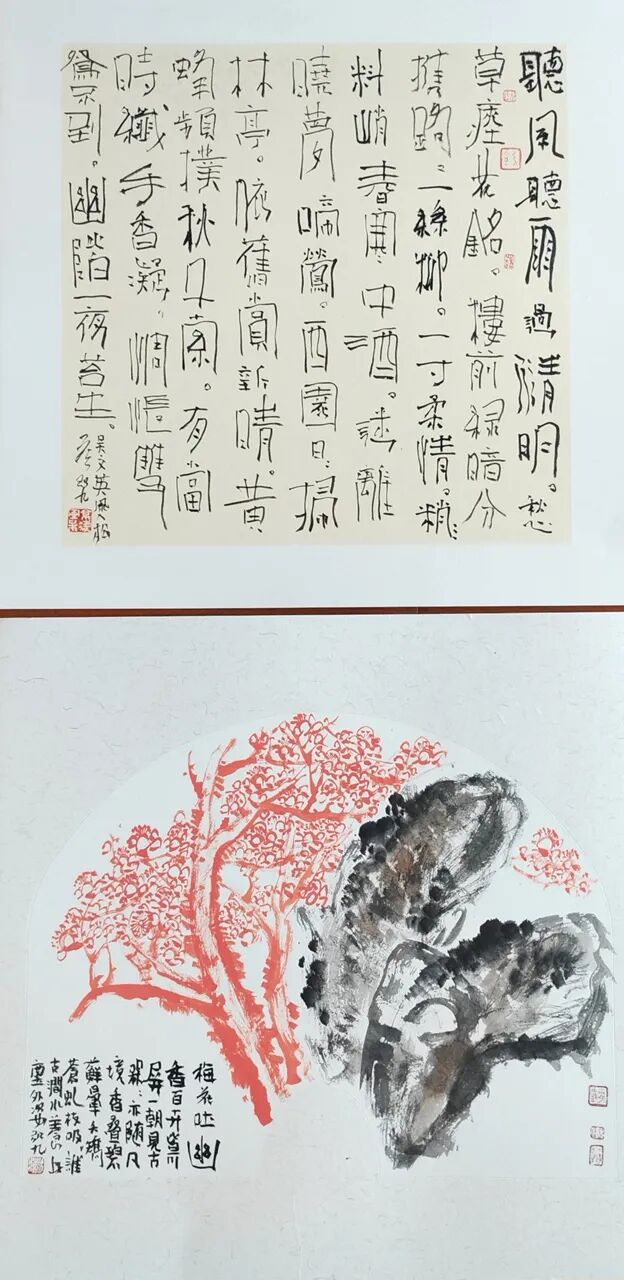 聽風聽雨過清明。愁
草瘞花銘。樓前綠暗分
攜路。一絲柳。一寸柔情。
料峭春寒中酒。迷離
曉夢啼鶯。西園日日掃
林亭。依舊賞新晴。黃
蜂頻撲秋千索。有當
時纖手香凝。惆悵雙
鴛不到。幽階一夜苔生。
吳文英風入松
梅花吐幽
香百卉皆
屏一朝見古
亦隨凡
境香疊碧
蘚暈夭矯
蒼虬枝吸誰
古澗水養此
塵外姿